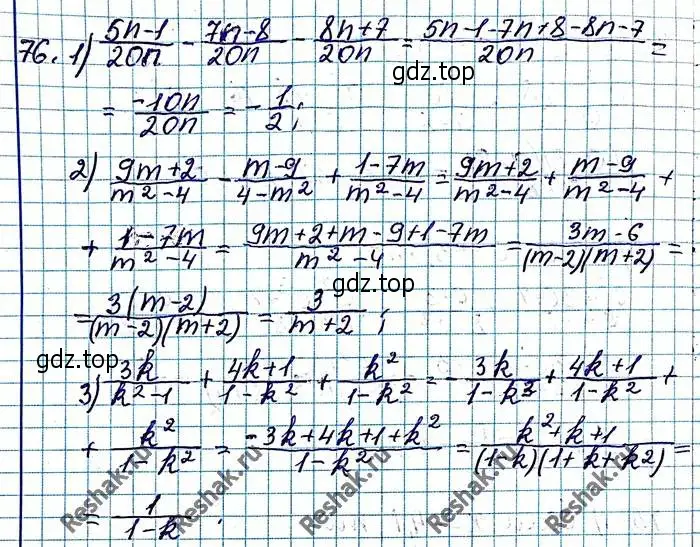 76. 1) (5n-1)/(20n) - (7n-8)/(20n) - (8n+7)/(20n) = (5n-1-7n+8-8n-7)/(20n) =
gdz.top
= (-10n)/(20n) = -1/2;
2) (9m+2)/(m²-4) - (m-9)/(4-m²) + (1-7m)/(m²-4) = (9m+2)/(m²-4) + (m-9)/(m²-4) +
+ (1-7m)/(m²-4) = (9m+2+m-9+1-7m)/(m²-4) = (3m-6)/((m-2)(m+2)) =
gdz.top
= (3(m-2))/((m-2)(m+2)) = 3/(m+2);
gdz.top
3) (3k)/(k²-1) + (4k+1)/(1-k²) + k²/(1-k²) = -(3k)/(1-k³) + (4k+1)/(1-k²) +
+ k²/(1-k²) = (-3k+4k+1+k²)/(1-k²) = (k²+k+1)/((1-k)(1+k+k²)) =
= 1/(1-k).
Reshak.ru
Reshak.ru
Reshak.ru
Reshak.ru